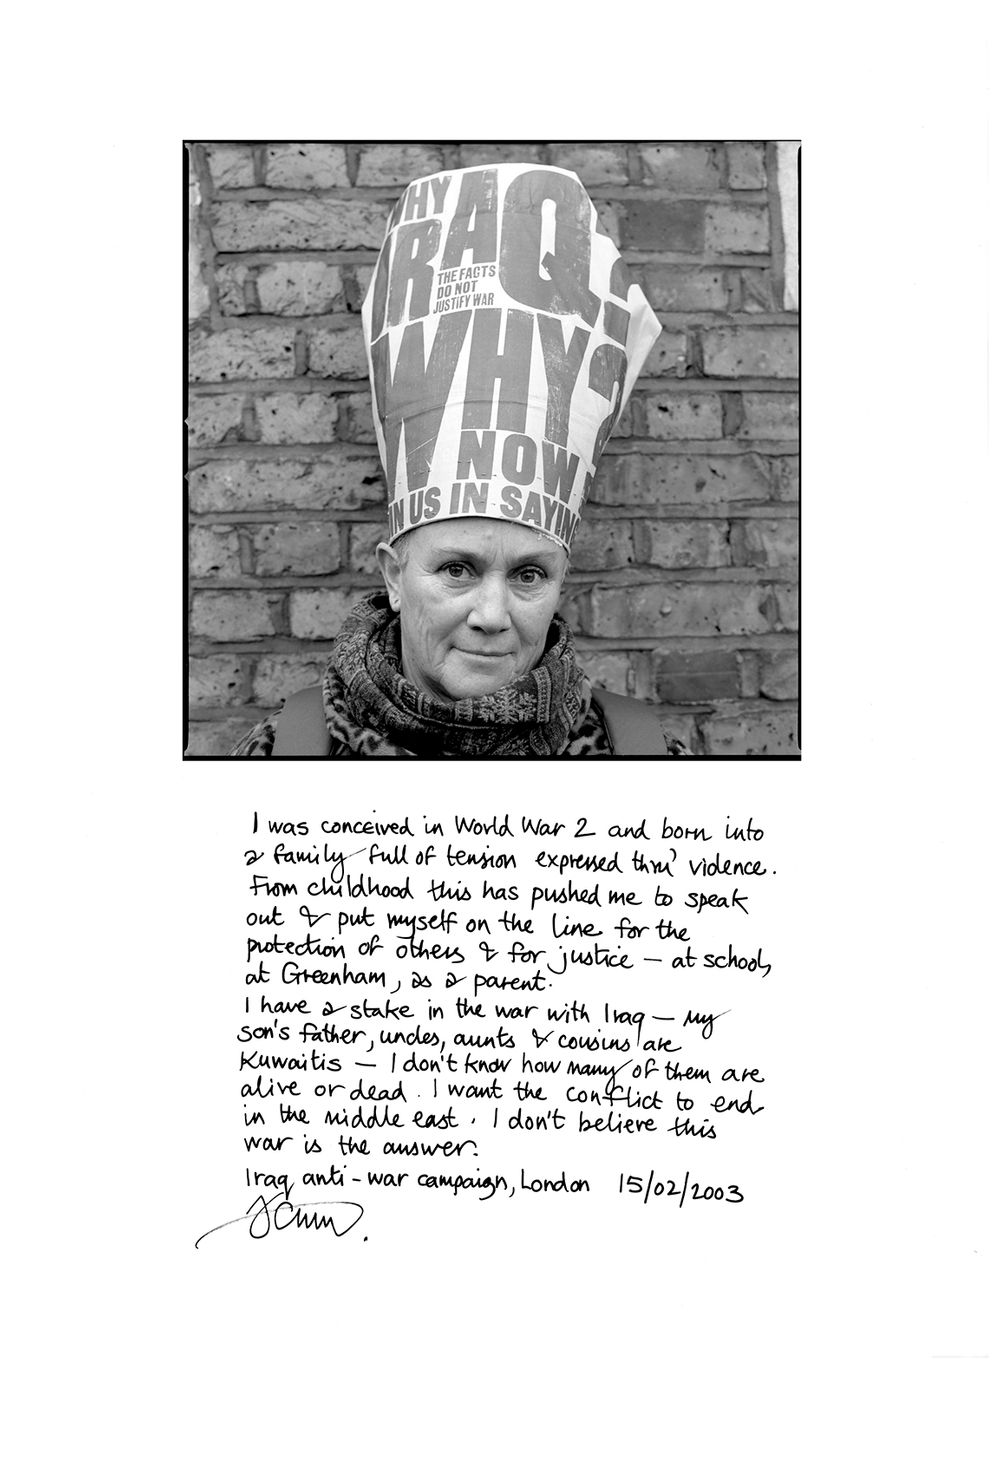 WHY
IRAQ?
THE FACTS
DO NOT
JUSTIFY WAR
WHY?
NOW
IN US IN SAYING
I was conceived in World War 2 and born into
a family full of tension expressed thru' violence.
From childhood this has pushed me to speak
out & put myself on the line for the
protection of others & for justice – at school,
at Greenham, as a parent.
I have a stake in the war with Iraq – my
son's father, uncles, aunts & cousins are
Kuwaitis – I don't know how many of them are
alive or dead. I want the conflict to end
in the middle east. I don't believe this
war is the answer.
Iraq anti-war campaign, London 15/02/2003